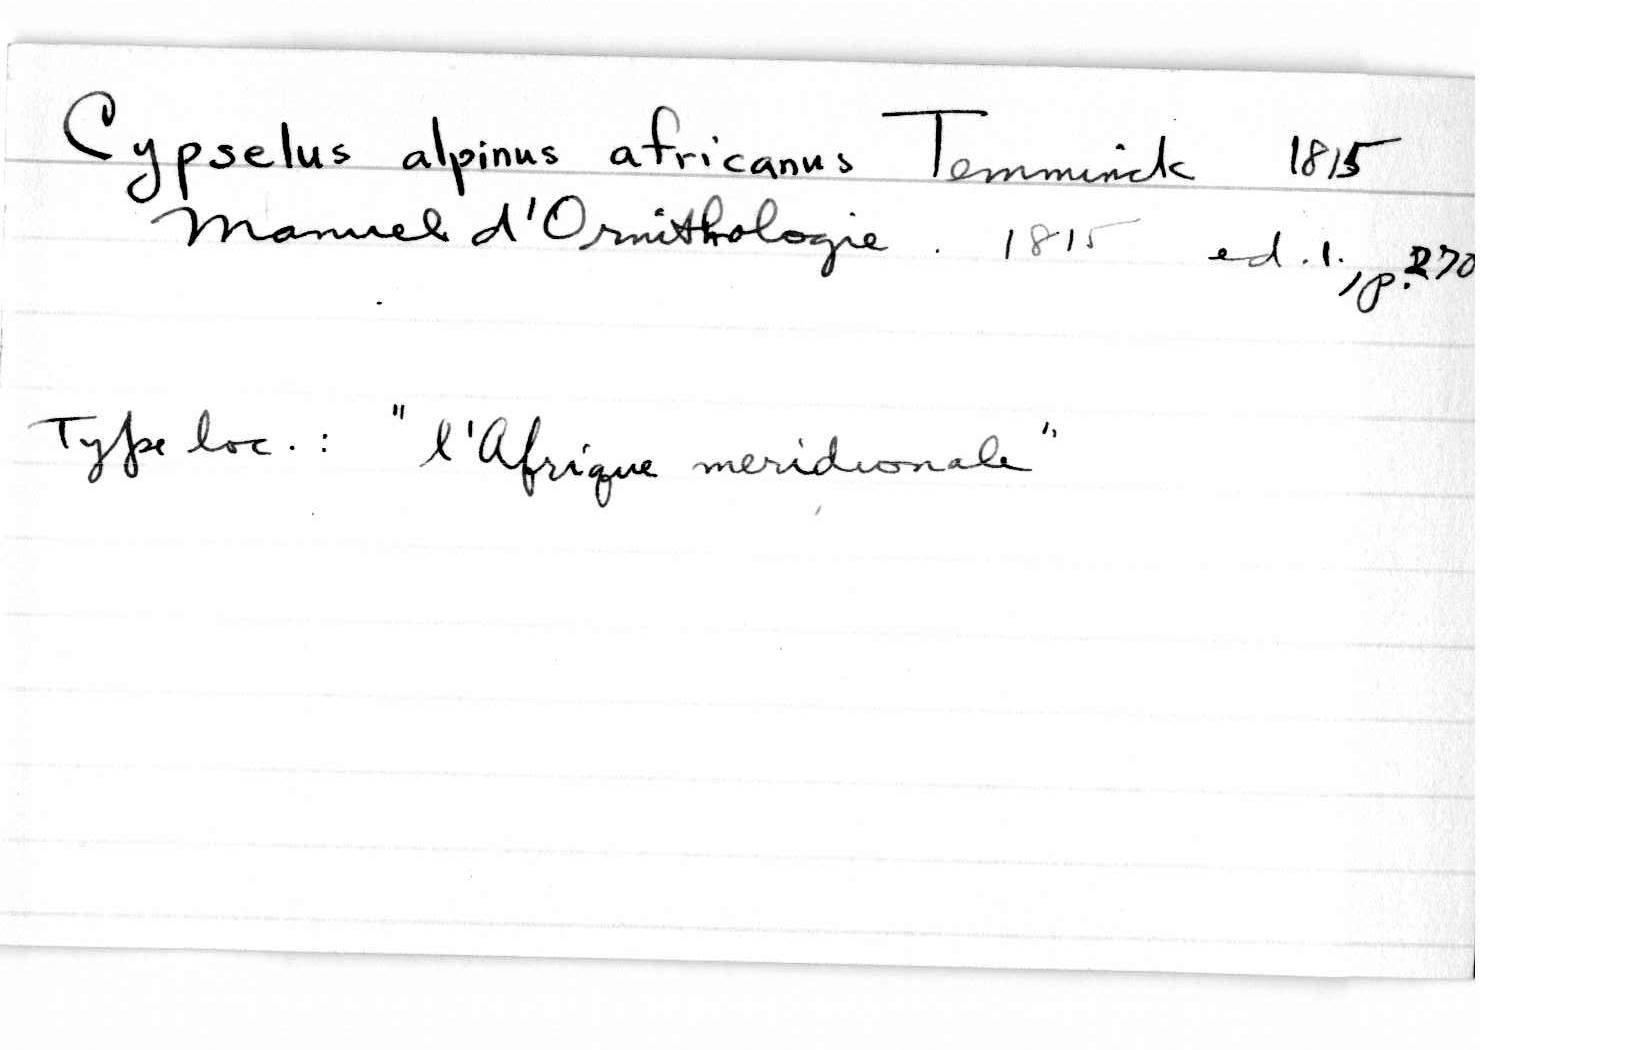 Cypselus alpinus africanus Temminck 1815
Manuel d'Ornithologie. 1815 ed. 1., p. 270
Type loc.: "l'Afrique meridionale"